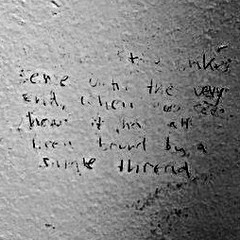 sense until the very
end, when you see
how it has all
been bound by a
single thread